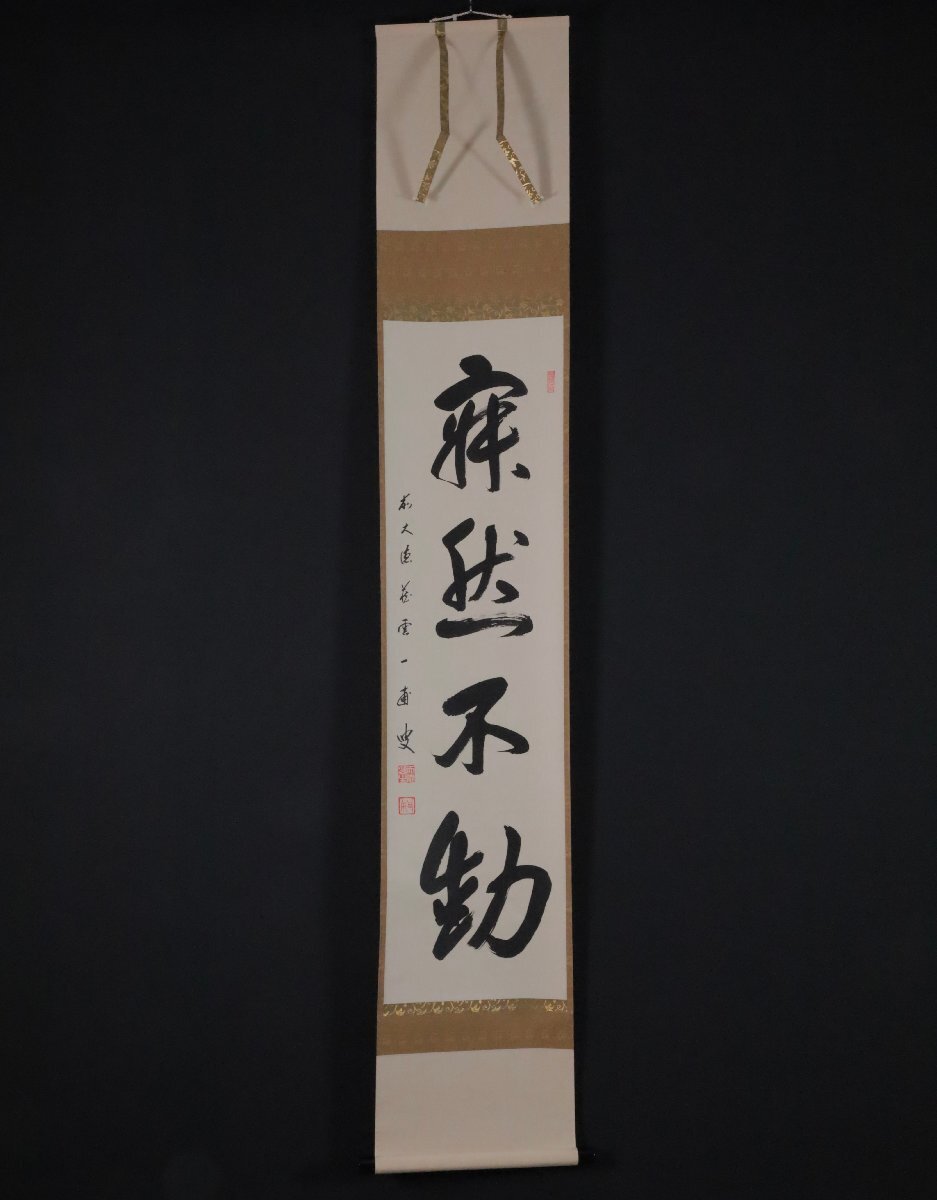 寂然不動
前大徳 雲一甫叟